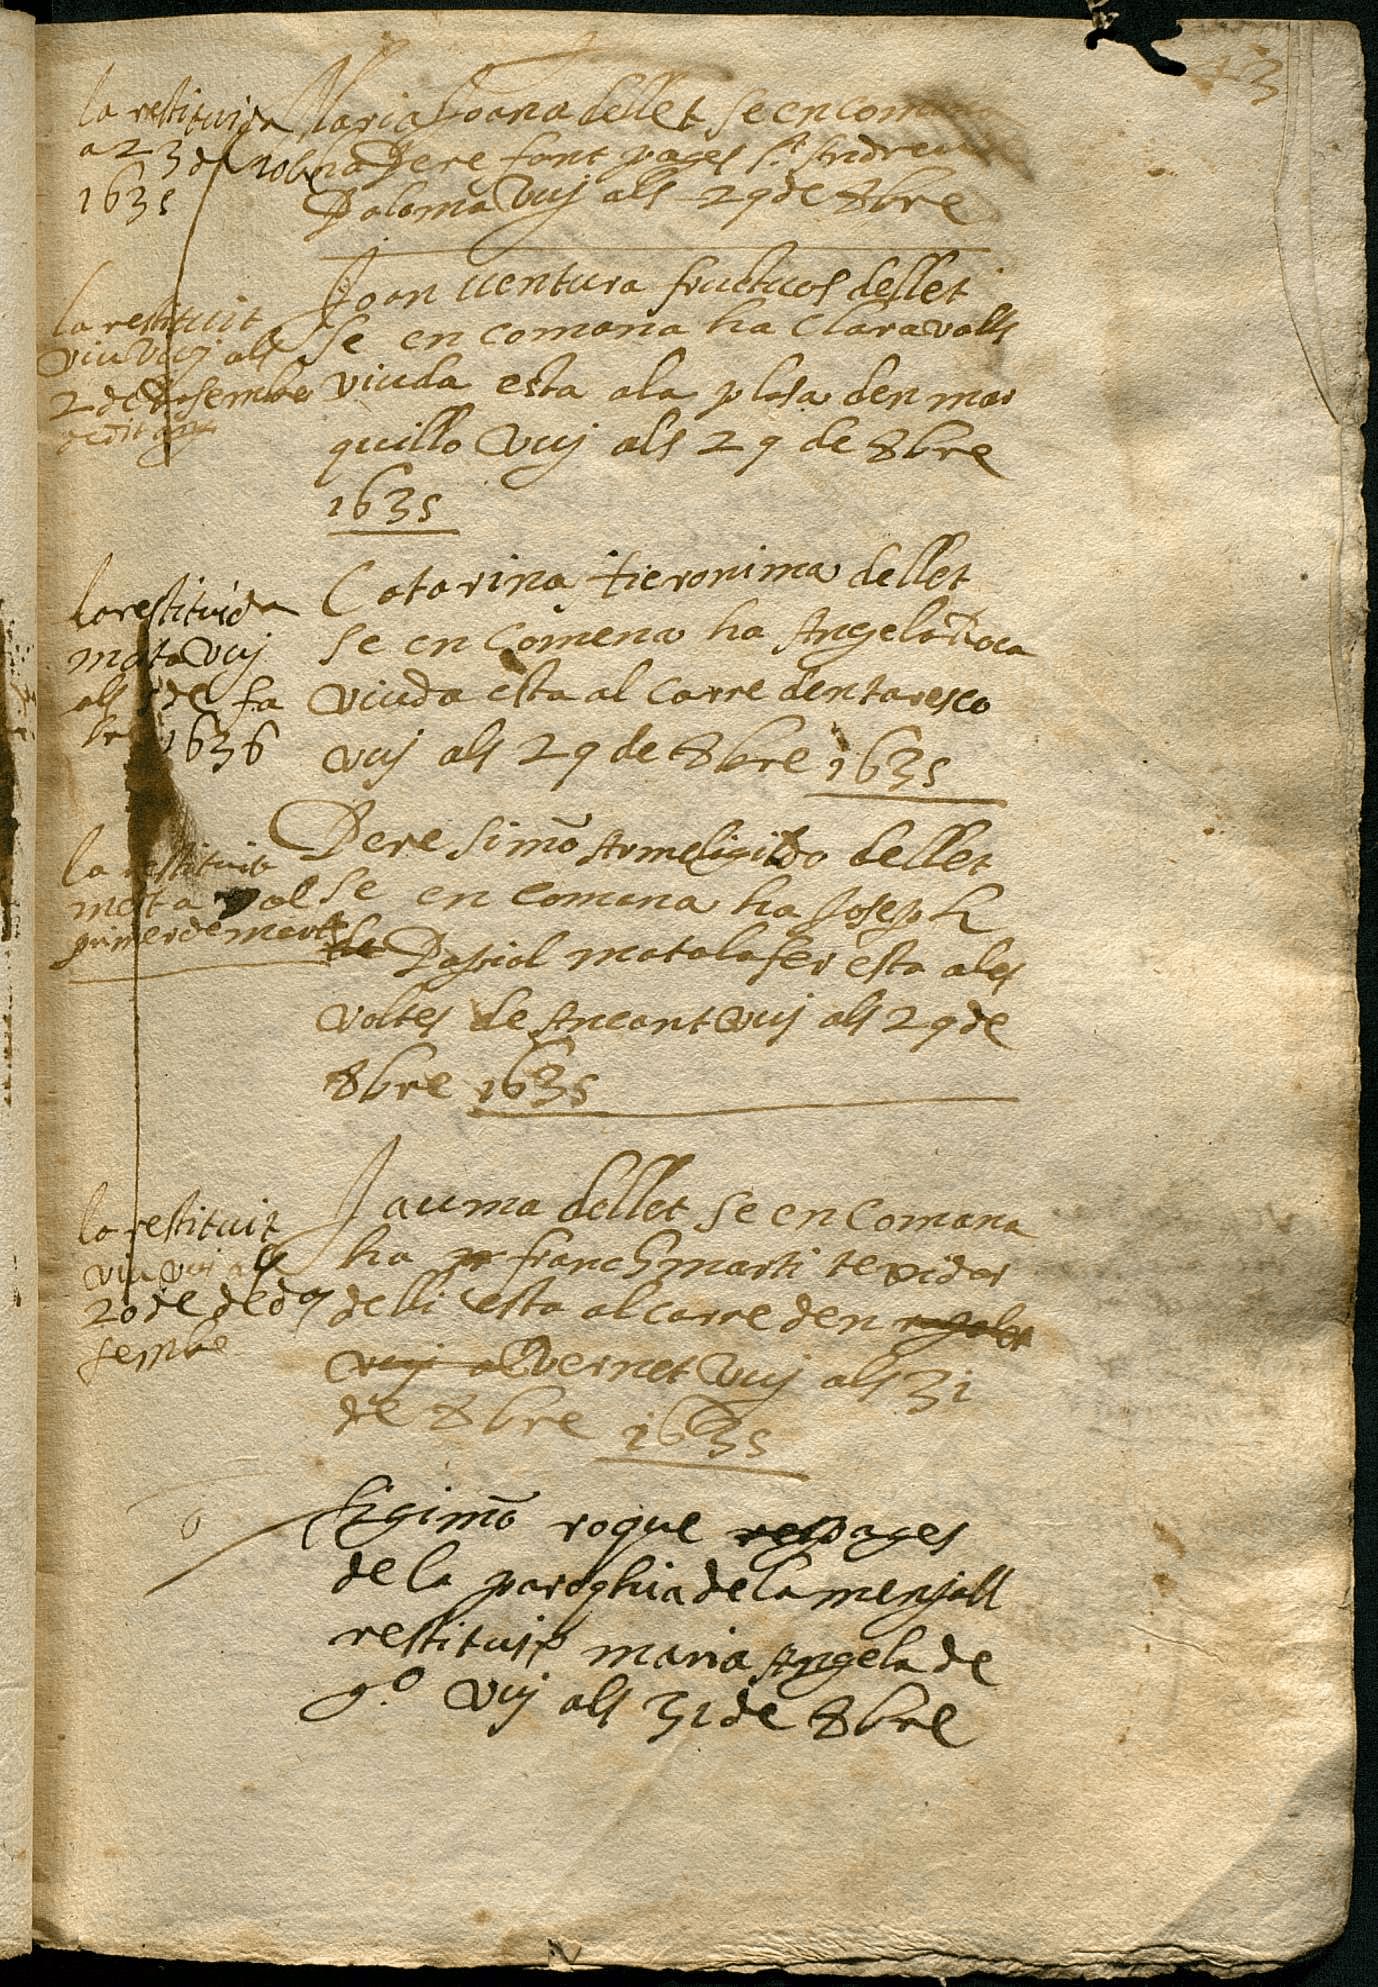 la restituida
a 23 de 10bre
1635
Maria Joana dellet se en comana
ha Pere font pages st Andreu
Palomà vuj als 29 de 8bre
la restituit
viu vuj als
2 de desembre
Joan ventura fructuos dellet
se en comana ha Clara valls
viuda esta ala plasa den mar
quillo vuj als 29 de 8bre
1635
la restituida
morta vuj
als de fa
bre 1636
Catarina Hieronima dellet
se en comena ha Angela Roca
viuda esta al carre dentaresco
vuj als 29 de 8bre 1635
la restituit
mort a al
primer de mars
Pere simō Armeligildo dellet
se en comana ha Joseph
Pasiol matalafer esta ales
voltes de Ancant vuj als 29 de
8bre 1635
la restituit
viu vuj als
20 de de
sembre
Jauma dellet se en comana
ha franch marti texidor
delli esta al carre den
vernet vuj als 31
de 8bre 1635
6
Hegimō roque pages
de la paroqhia de la menjall
restituix maria Angela de
go vuj als 31 de 8bre